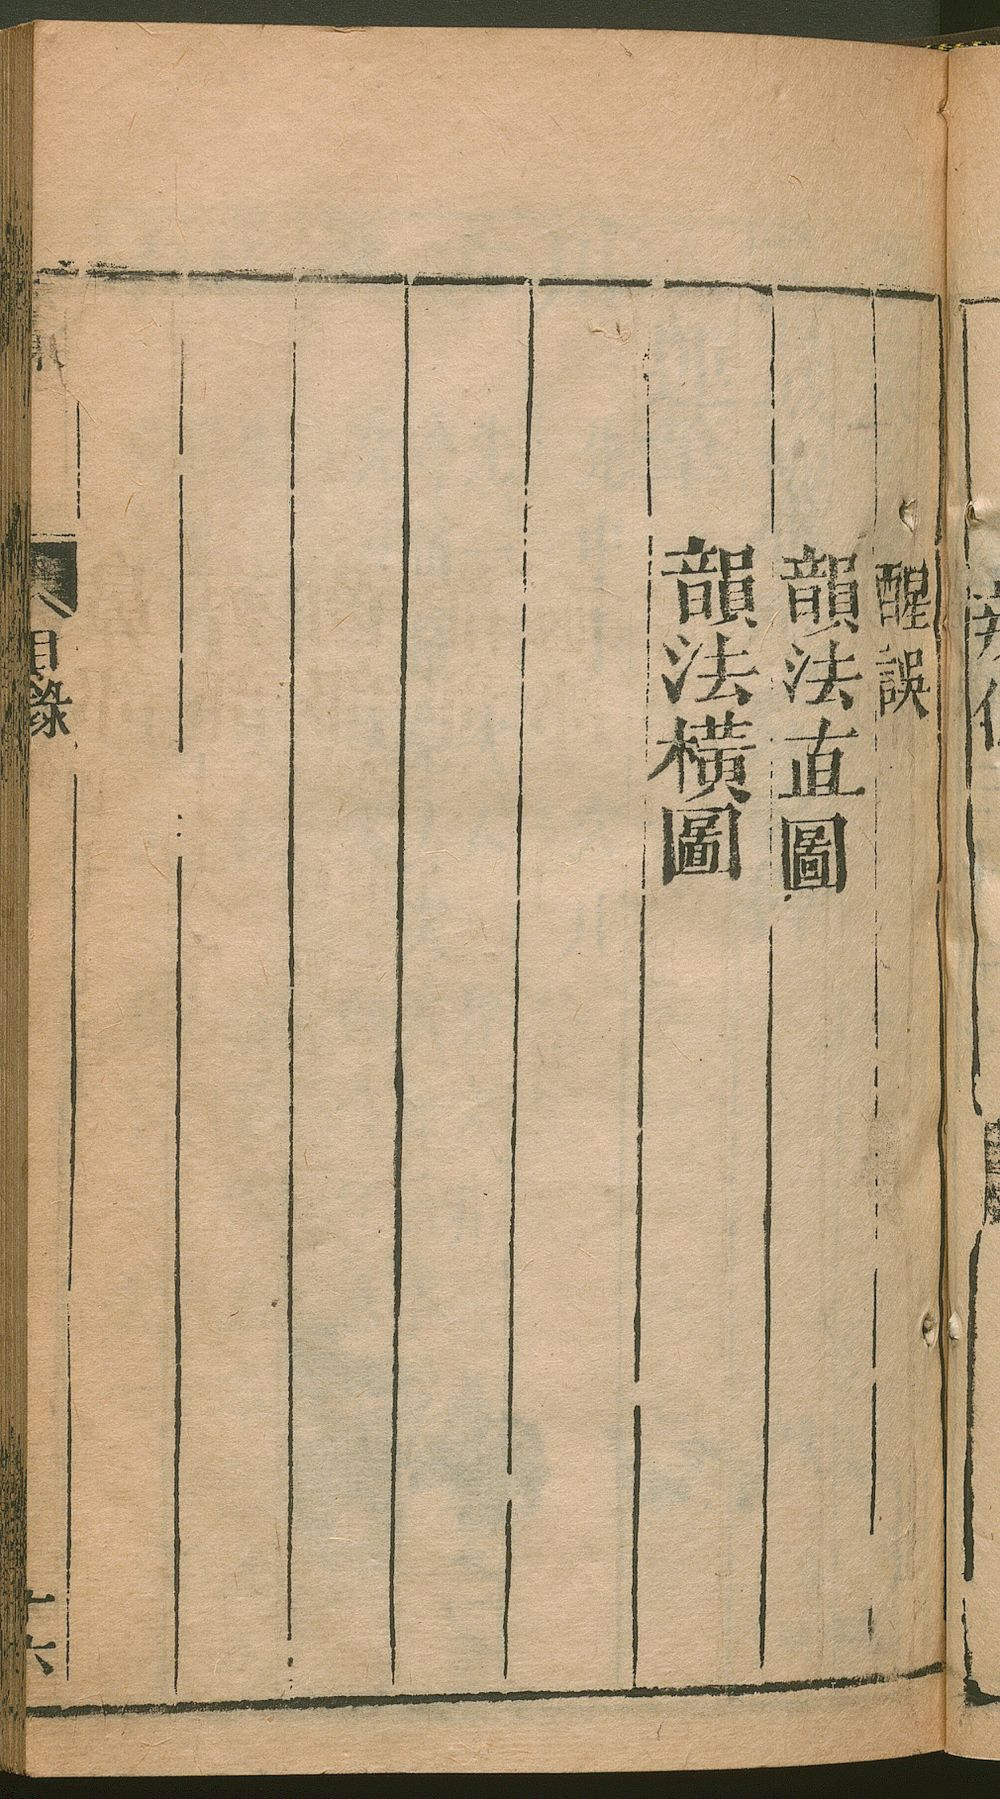 醒誤
韻法直圖
韻法橫圖
目錄
十六